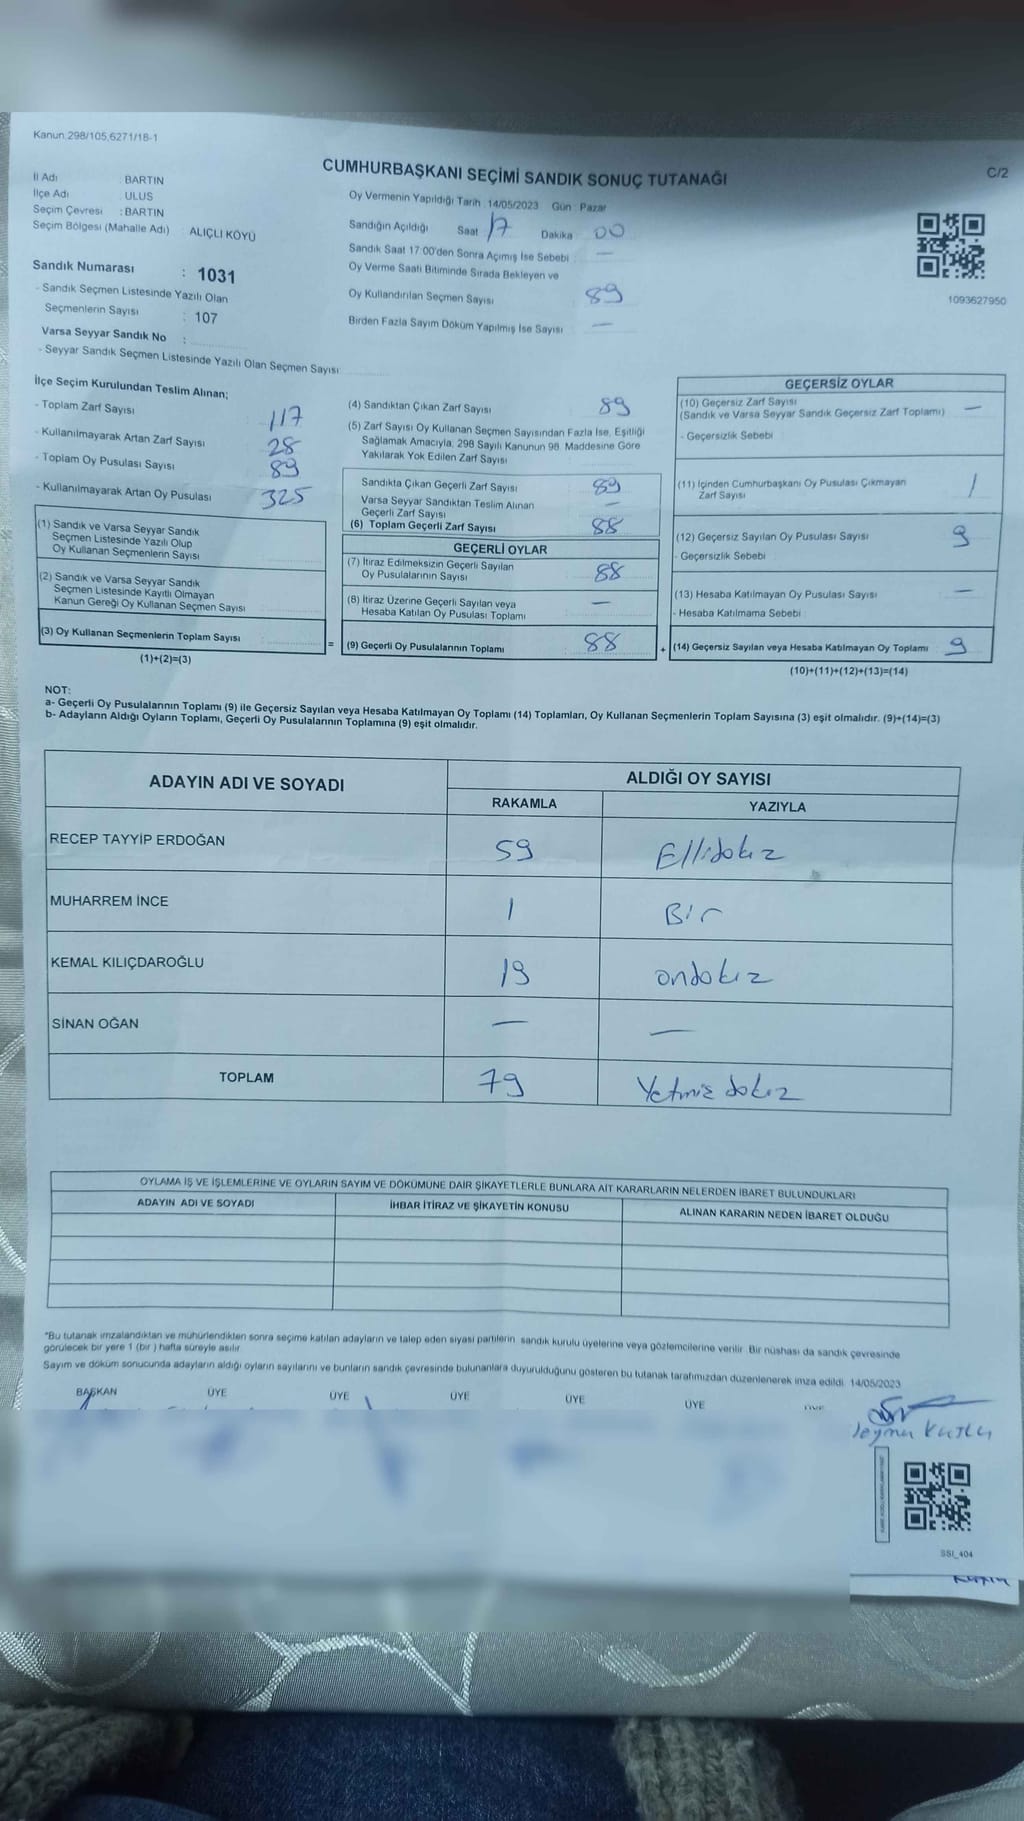 Kanun:298/105,6271/18-1
CUMHURBAŞKANI SEÇİMİ SANDIK SONUÇ TUTANAĞI
C/2
İl Adı : BARTIN
İlçe Adı : ULUS
Seçim Çevresi : BARTIN
Seçim Bölgesi (Mahalle Adı) : ALIÇLI KÖYÜ
Sandık Numarası : 1031
- Sandık Seçmen Listesinde Yazılı Olan
Seçmenlerin Sayısı : 107
Varsa Seyyar Sandık No :
- Seyyar Sandık Seçmen Listesinde Yazılı Olan Seçmen Sayısı
Oy Vermenin Yapıldığı Tarih : 14/05/2023 Gün : Pazar
Sandığın Açıldığı Saat 17 Dakika 00
Sandık Saat 17:00'den Sonra Açımış İse Sebebi : —
Oy Verme Saati Bitiminde Sırada Bekleyen ve
Oy Kullandırılan Seçmen Sayısı 89
Birden Fazla Sayım Döküm Yapılmış İse Sayısı : —
1093627950
İlçe Seçim Kurulundan Teslim Alınan;
- Toplam Zarf Sayısı 117
- Kullanılmayarak Artan Zarf Sayısı 28
- Toplam Oy Pusulası Sayısı 89
- Kullanılmayarak Artan Oy Pusulası 325
(1) Sandık ve Varsa Seyyar Sandık
Seçmen Listesinde Yazılı Olup
Oy Kullanan Seçmenlerin Sayısı
(2) Sandık ve Varsa Seyyar Sandık
Seçmen Listesinde Kayıtlı Olmayan
Kanun Gereği Oy Kullanan Seçmen Sayısı
(3) Oy Kullanan Seçmenlerin Toplam Sayısı
(1)+(2)=(3)
(4) Sandıktan Çıkan Zarf Sayısı 89
(5) Zarf Sayısı Oy Kullanan Seçmen Sayısından Fazla İse, Eşitliği
Sağlamak Amacıyla, 298 Sayılı Kanunun 98. Maddesine Göre
Yakılarak Yok Edilen Zarf Sayısı
Sandıkta Çıkan Geçerli Zarf Sayısı 89
Varsa Seyyar Sandıktan Teslim Alınan
Geçerli Zarf Sayısı —
(6) Toplam Geçerli Zarf Sayısı 88
GEÇERLİ OYLAR
(7) İtiraz Edilmeksizin Geçerli Sayılan
Oy Pusulalarının Sayısı 88
(8) İtiraz Üzerine Geçerli Sayılan veya
Hesaba Katılan Oy Pusulası Toplamı —
= (9) Geçerli Oy Pusulalarının Toplamı 88
GEÇERSİZ OYLAR
(10) Geçersiz Zarf Sayısı
(Sandık ve Varsa Seyyar Sandık Geçersiz Zarf Toplamı) —
- Geçersizlik Sebebi
(11) İçinden Cumhurbaşkanı Oy Pusulası Çıkmayan
Zarf Sayısı 1
(12) Geçersiz Sayılan Oy Pusulası Sayısı 9
- Geçersizlik Sebebi
(13) Hesaba Katılmayan Oy Pusulası Sayısı —
- Hesaba Katılmama Sebebi
+ (14) Geçersiz Sayılan veya Hesaba Katılmayan Oy Toplamı 9
(10)+(11)+(12)+(13)=(14)
NOT:
a- Geçerli Oy Pusulalarının Toplamı (9) ile Geçersiz Sayılan veya Hesaba Katılmayan Oy Toplamı (14) Toplamları, Oy Kullanan Seçmenlerin Toplam Sayısına (3) eşit olmalıdır. (9)+(14)=(3)
b- Adayların Aldığı Oyların Toplamı, Geçerli Oy Pusulalarının Toplamına (9) eşit olmalıdır.
ADAYIN ADI VE SOYADI
ALDIĞI OY SAYISI
RAKAMLA YAZIYLA
RECEP TAYYİP ERDOĞAN 59 Ellidokuz
MUHARREM İNCE 1 Bir
KEMAL KILIÇDAROĞLU 19 ondokuz
SİNAN OĞAN — —
TOPLAM 79 Yetmiş dokuz
OYLAMA İŞ VE İŞLEMLERİNE VE OYLARIN SAYIM VE DÖKÜMÜNE DAİR ŞİKAYETLERLE BUNLARA AİT KARARLARIN NELERDEN İBARET BULUNDUKLARI
ADAYIN ADI VE SOYADI İHBAR İTİRAZ VE ŞİKAYETİN KONUSU ALINAN KARARIN NEDEN İBARET OLDUĞU
*Bu tutanak imzalandıktan ve mühürlendikten sonra seçime katılan adayların ve talep eden siyasi partilerin sandık kurulu üyelerine veya gözlemcilerine verilir. Bir nüshası da sandık çevresinde
görülecek bir yere 1 (bir ) hafta süreyle asılır.
Sayım ve döküm sonucunda adayların aldığı oyların sayılarını ve bunların sandık çevresinde bulunanlara duyurulduğunu gösteren bu tutanak tarafımızdan düzenlenerek imza edildi. 14/05/2023
BAŞKAN ÜYE ÜYE ÜYE ÜYE ÜYE
SSI_404